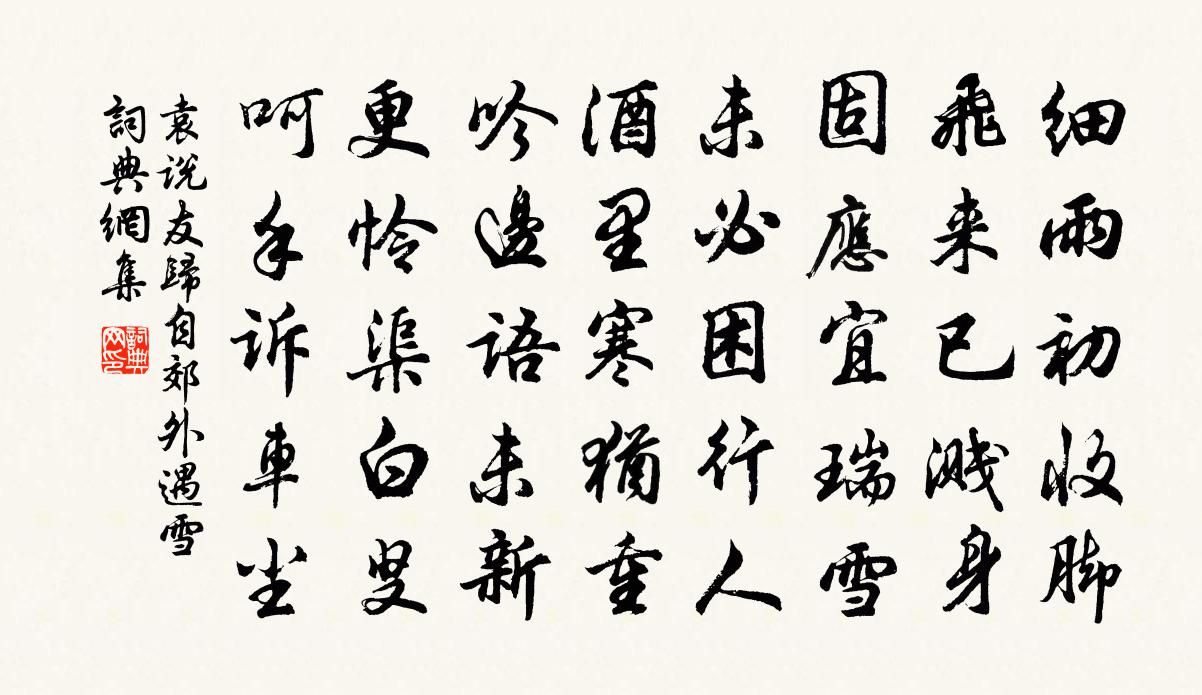 细雨初收脚
飛来已溅身
固應宜瑞雪
未必困行人
酒里寒猶重
吟邊語未新
更怜渠白叟
呵手訴車尘
袁说友歸自郊外遇雪
詞典網集
詞典网印